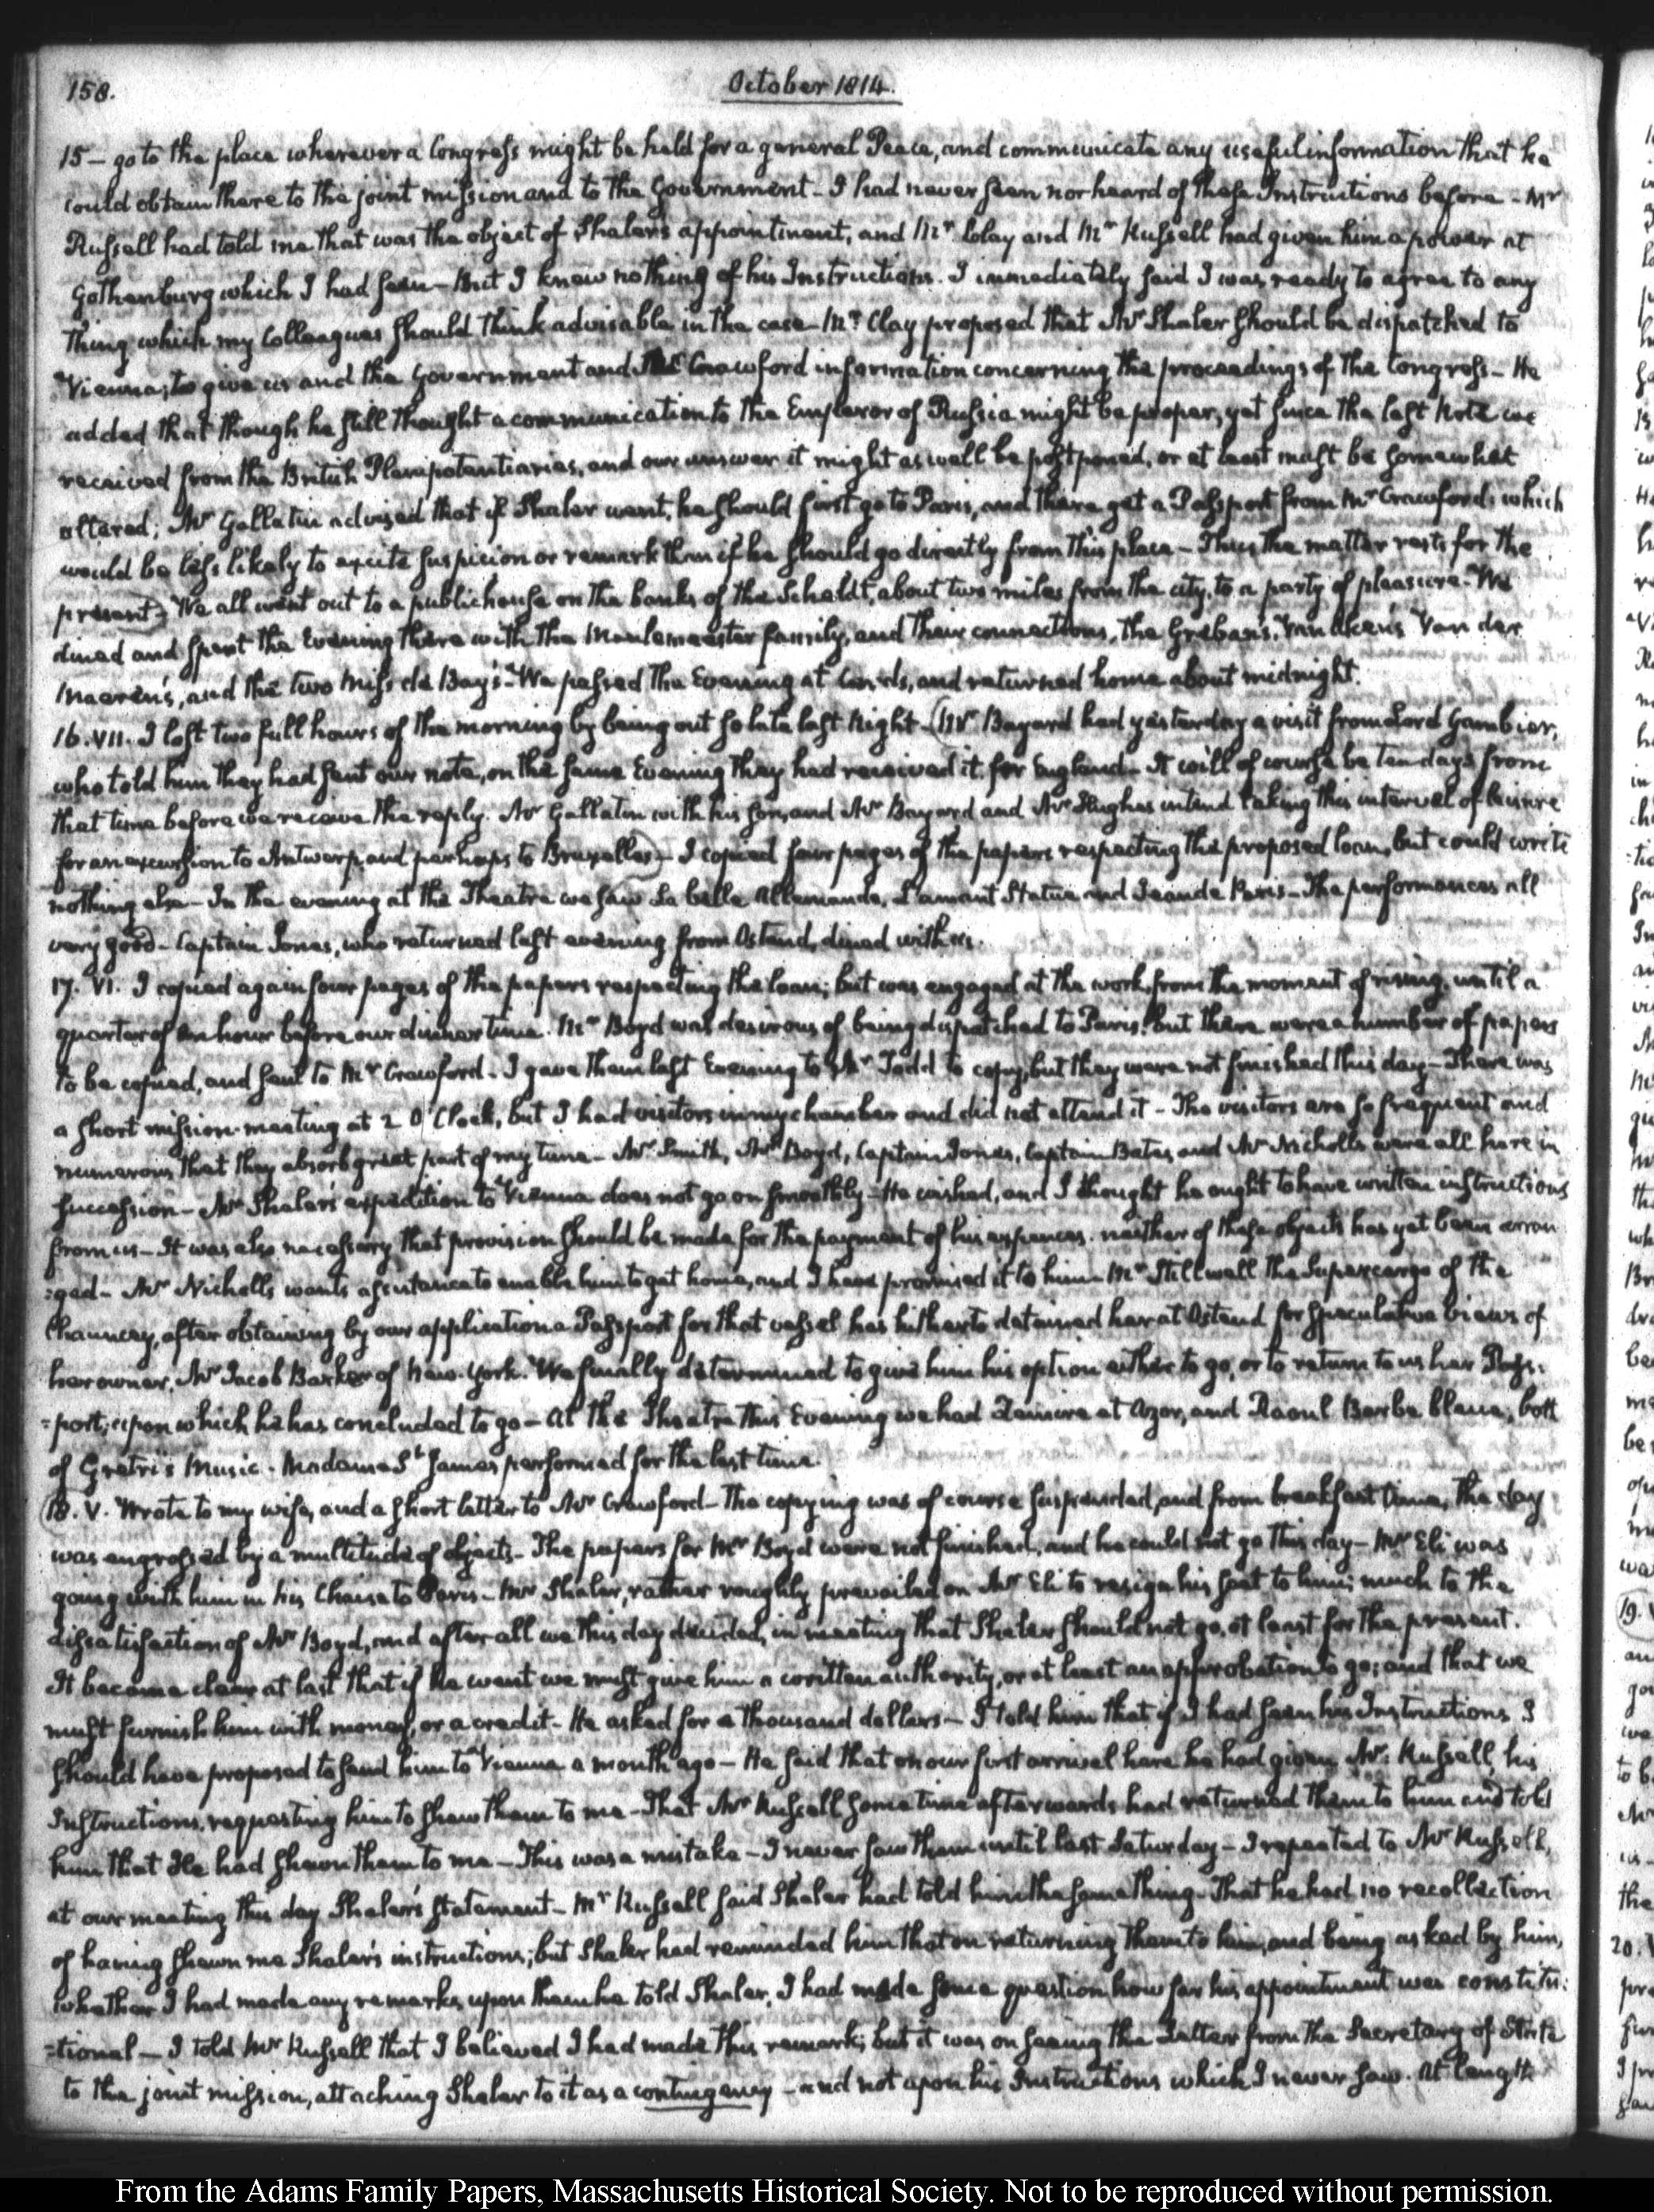 158.
October 1814.
15 — go to the place wherever a Congress might be held for a general Peace, and communicate any useful information that he
could obtain there to the joint mission and to the Government – I had never seen nor heard of these Instructions before – Mr
Russell had told me that was the object of Shaler's appointment, and Mr Clay and Mr Russell had given him a power at
Gothenburg which I had seen – But I knew nothing of his Instructions. I immediately said I was ready to agree to any
thing which my Colleagues should think advisable in the case – Mr Clay proposed that Mr Shaler should be dispatched to
Vienna, to give us and the Government and Mr Crawford information concerning the proceedings of the Congress – He
added that though he still thought a communication to the Emperor of Russia might be proper, yet since the last Note we
received from the British Plenipotentiaries, and our answer it might as well be postponed, or at least must be somewhat
altered; Mr Gallatin advised that if Shaler went, he should first go to Paris, and there get a Passport from Mr Crawford, which
would be less likely to excite suspicion or remark than if he should go directly from this place – Thus the matter rests for the
present) – We all went out to a public house on the banks of the Scheldt, about two miles from the city, to a party of pleasure. We
dined and spent the Evening there with the Meulemeester family, and their connections, the Greban's, Van Aken's Van der
Maeren's, and the two Miss de Bay's – We passed the Evening at Cards, and returned home about midnight.
16. VII. I lost two full hours of the morning by being out so late last Night – (Mr Bayard had yesterday a visit from Lord Gambier,
who told him they had sent our note, on the same Evening they had received it, for England – It will of course be ten days from
that time before we receive the reply. Mr Gallatin with his son, and Mr Bayard and Mr Hughes intend taking this interval of leisure
for an excursion to Antwerp and perhaps to Bruxelles) – I copied four pages of the papers respecting the proposed loan, but could write
nothing else – In the evening at the Theatre we saw La belle Allemande, L'amant Statue and Jean de Paris – The performances all
very good – Captain Jones, who returned last evening from Ostend, dined with us.
17. VI. I copied again four pages of the papers respecting the loan; but was engaged at the work, from the moment of rising, until a
quarter of an hour before our dinner time. Mr Boyd was desirous of being dispatched to Paris; but there were a number of papers
to be copied, and sent to Mr Crawford – I gave them last Evening to Mr Todd to copy, but they were not finished this day – There was
a short mission-meeting at 2 O'Clock, but I had visitors in my chamber and did not attend it – The visitors are so frequent and
numerous that they absorb great part of my time – Mr Smith, Mr Boyd, Captain Jones, Captain Bates, and Mr Nicholls were all here in
succession – Mr Shaler's expedition to Vienna does not go on smoothly – He wished, and I thought he ought to have written instructions
from us – It was also necessary that provision should be made for the payment of his expences. neither of these objects has yet been arran
=ged – Mr Nicholls wants assistance to enable him to get home, and I have promised it to him – Mr Stillwell the Supercargo of the
Chauncey, after obtaining by our application a Passport for that vessel has hitherto detained her at Ostend for speculative views of
her owner, Mr Jacob Barker of New-York. We finally determined to give him his option either to go, or to return to us her Pass=
=port; upon which he has concluded to go – At the Theatre this Evening we had Zemire et Azor, and Raoul Barbe bleue, both
of Gretri's Music. Madame St James performed for the last time.
(18. V. Wrote to my wife, and a short letter to Mr Crawford – The copying was of course suspended, and from breakfast time, the day
was engrossed by a multitude of objects – The papers for Mr Boyd were not finished, and he could not go this day – Mr Eli was
going with him in his Chaise to Paris – Mr Shaler, rather roughly prevailed on Mr Eli to resign his seat to him; much to the
dissatisfaction of Mr Boyd, and after all we this day decided, in meeting that Shaler should not go, at least for the present.
It became clear at last that if he went we must give him a written authority, or at least an approbation to go; and that we
must furnish him with money, or a credit – He asked for a thousand dollars – I told him that if I had seen his Instructions I
should have proposed to send him to Vienna a month ago – He said that on our first arrival here he had given Mr Russell, his
Instructions, requesting him to shew them to me – That Mr Russell some time afterwards had returned them to him and told
him that He had shewn them to me – This was a mistake – I never saw them until last Saturday – I repeated to Mr Russell,
at our meeting this day Shaler's statement – Mr Russell said Shaler had told him the same thing – That he had no recollection
of having shewn me Shaler's instructions; but Shaler had reminded him that on returning them to him, and being asked by him,
whether I had made any remarks upon them he told Shaler, I had made some question how far his appointment was constitu=
=tional — I told Mr Russell that I believed I had made this remark; but it was on seeing the Letter from the Secretary of State
to the joint mission, attaching Shaler to it as a contingency – and not upon his Instructions which I never saw. At length
From the Adams Family Papers, Massachusetts Historical Society. Not to be reproduced without permission.